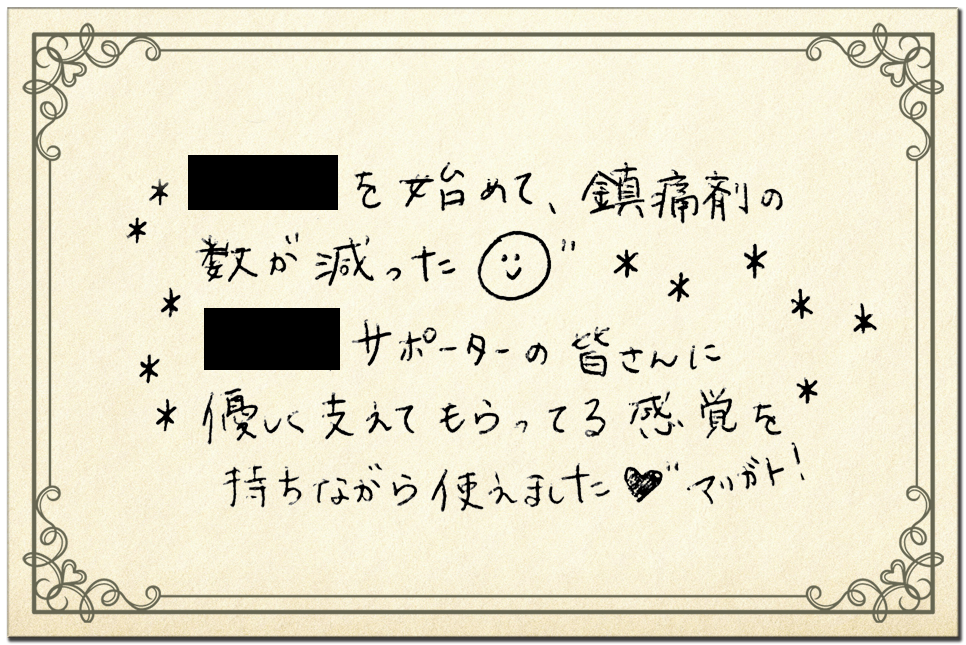 を始めて、鎮痛剤の
数が減った
サポーターの皆さんに
優しく支えてもらってる感覚を
持ちながら使えました♥マリガト!